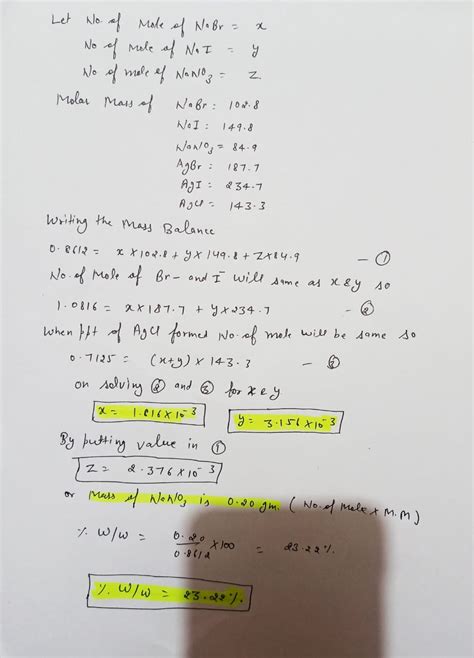 Let No. of Mole of NaBr = x
No of Mole of NaI = y
No of mole of NaNO3 = Z
Molar Mass of NaBr : 102.8
NaI : 149.8
NaNO3 = 84.9
AgBr : 187.7
AgI : 234.7
AgCl : 143.3
Writing the Mass Balance
0.8612 = x × 102.8 + y × 149.8 + Z × 84.9 — ①
No. of Mole of Br- and I- will same as x & y so
1.0816 = x × 187.7 + y × 234.7 — ②
When ppt of AgCl formed No. of mole will be same so
0.7125 = (x+y) × 143.3 — ③
on solving ② and ③ for x & y
x = 1.816 × 10-3 y = 3.156 × 10-3
By putting value in ①
Z = 2.376 × 10-3
or Mass of NaNO3 is 0.20 gm. (No. of Mole × M.M)
% W/W = 0.20/0.8612 × 100 = 23.22 %.
% W/W = 23.22 %.